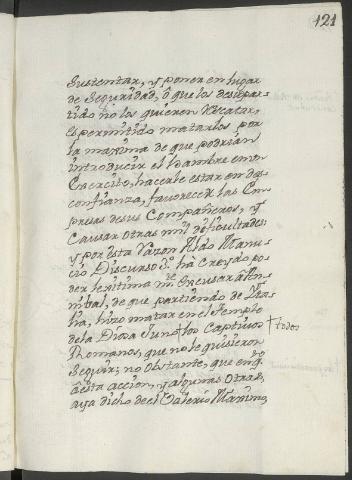 121
Sustentar, y poner en lugar
de Seguridad, ô que los de su par-
tido no los quieren Rescatar,
es permitido matarlos por
la maxima de que podrian
introducir el hambre en un
Exercito, hacerle estar en des-
confianza, favorecer las Em-
presas de sus Compañeros, y
Causar otras mil dificultades:
y por esta Razon Aldo Manu-
cio Discurso 3.º hà Creydo po-
der lexitima m.te Excusar a Ani-
bal, de que partiendo de Yta-
lia, hizo matar en el Templo
de la Diosa Juno † los Captivos † todos
Romanos, que no le quisieron
Seguir; no obstante, que en q.to
â esta accion, y algunas otras,
aya dicho de el Valerio Maximo,